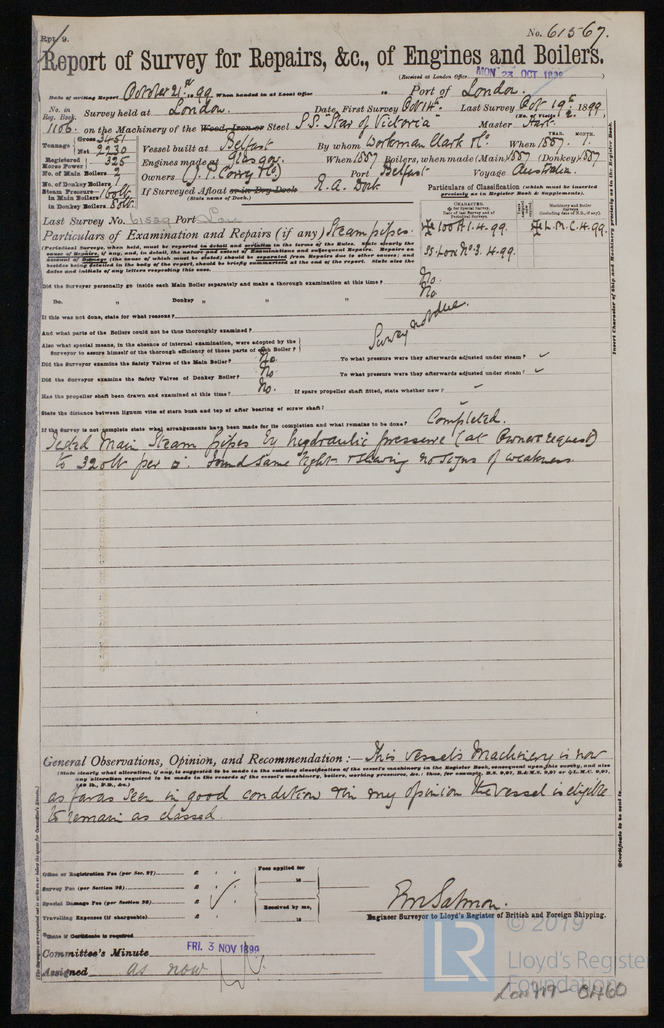 Rpt. 9.
No. 61567.
Report of Survey for Repairs, &c., of Engines and Boilers.
(Received at London Office MON 23 OCT 1899)
Date of writing Report October 21st 1899 When handed in at Local Office 18 Port of London.
No. in Reg. Book. Survey held at London. Date, First Survey Oct 14. Last Survey Oct 19th 1899
(No. of Visits 2)
1106. on the Machinery of the Wood, Iron or Steel S.S. "Star of Victoria" Master Hart.
Tonnage Gross 3451 Net 2230 Vessel built at Belfast By whom Workman Clark & Co. When 1887. YEAR. MONTH. 1.
Registered Horse Power 325 Engines made at Glasgow. When 1887 Boilers, when made (Main) 1887 (Donkey) 1887
No. of Main Boilers 2 Owners (J. P. Corry & Co) Port Belfast Voyage Australia.
No. of Donkey Boilers 1
Steam Pressure in Main Boilers 160 lb. If Surveyed Afloat or in Dry Dock R. A. Dock
in Donkey Boilers 80 lb. (State name of Dock.)
Particulars of Classification (which must be inserted precisely as in Register Book & Supplements).
Last Survey No. 61529 Port Lon
CHARACTER. Machinery and Boiler Surveys (including date of N.B., if any).
100 A1. 4.99. L.M.C. 4.99.
SS Lon No. 3. 4.99.
Particulars of Examination and Repairs (if any) Steam pipes.
(Periodical Surveys, when held, must be reported in detail and seriatim in the terms of the Rules. State clearly the cause of Repairs, if any, and, in detail, the nature and extent of Examinations and subsequent Repairs. Repairs on account of Damage (the cause of which must be stated) should be separated from Repairs due to other causes; and besides being detailed in the body of the report, should be briefly summarised at the end of the report. State also the dates and initials of any letters respecting this case.
Did the Surveyor personally go inside each Main Boiler separately and make a thorough examination at this time? No.
Do. " Donkey " " " No
If this was not done, state for what reasons? Survey not due.
And what parts of the Boilers could not be thus thoroughly examined?
Also what special means, in the absence of internal examination, were adopted by the Surveyor to assure himself of the thorough efficiency of those parts of each Boiler?
Did the Surveyor examine the Safety Valves of the Main Boiler? No. To what pressure were they afterwards adjusted under steam?
Did the Surveyor examine the Safety Valves of Donkey Boiler? No To what pressure were they afterwards adjusted under steam?
Has the propeller shaft been drawn and examined at this time? No. If spare propeller shaft fitted, state whether new?
State the distance between lignum vitæ of stern bush and top of after bearing of screw shaft?
If the Survey is not complete state what arrangements have been made for its completion and what remains to be done? Completed.
Tested Main Steam pipes by hydraulic pressure (at Owners request)
to 320 lb per □". found same tight & shewing no signs of weakness.
General Observations, Opinion, and Recommendation :— This vessel's Machinery is now
(State clearly what alteration, if any, is suggested to be made in the existing classification of the vessel's machinery, consequent upon this survey, and also any alteration required to be made in the records of the vessel's machinery, boilers, working pressure, &c.: thus, for example,
as far as seen in good condition & in my opinion the vessel is eligible
to remain as classed
Office or Registration Fee (per Sec. 27) £ : :
Survey Fee (per Section 28) £ : :
Special Damage Fee (per Section 28) £ : :
Travelling Expenses (if chargeable) £ : :
Fees applied for 18
Received by me, 18
Engineer Surveyor to Lloyd's Register of British and Foreign Shipping.
*State if Certificate is required
Committee's Minute FRI. 3 NOV 1899
Assigned as now
Insert Character of Ship and Machinery precisely as in the Register Book.
Certificate to be sent to
© 2019
LR
Lloyd's Register
Foundation